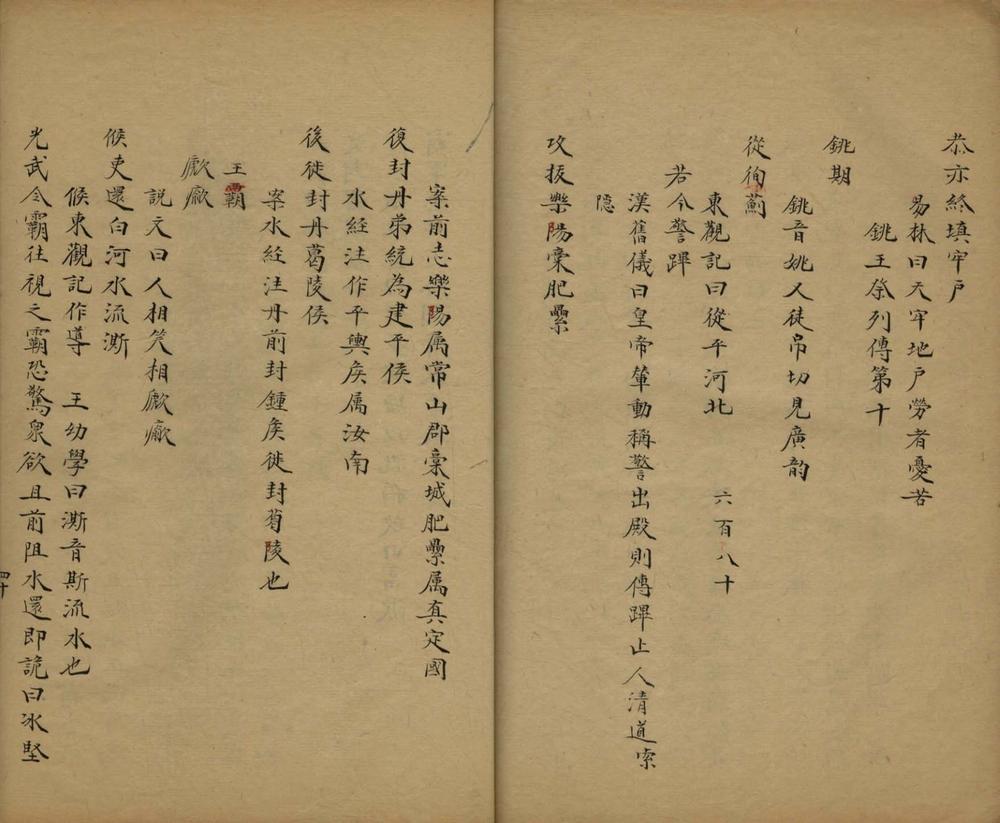 恭亦終填牢戶
易林曰天牢地戶勞者憂苦
銚王祭列傳第十
銚期
銚音姚又徒吊切見廣韵
從徇薊
東觀記曰從平河北 六百八十
若令警蹕
漢舊儀曰皇帝輦動稱警出殿則傳蹕止人清道索
隐
攻拔樂陽稾肥纍
案前志樂陽属常山郡稾城肥纍属真定國
復封丹弟統為建平侯
水經注作平輿矦属汝南
後徙封丹葛陵侯
案水經注丹前封鍾矦徙封葛陵也
王霸
歋廠
說文曰人相笑相歋廠
候吏還白河水流澌
候東觀記作導 王幼學曰澌音斯流水也
光武令霸往視之霸恐驚衆欲且前阻水還即詭曰冰堅
四十